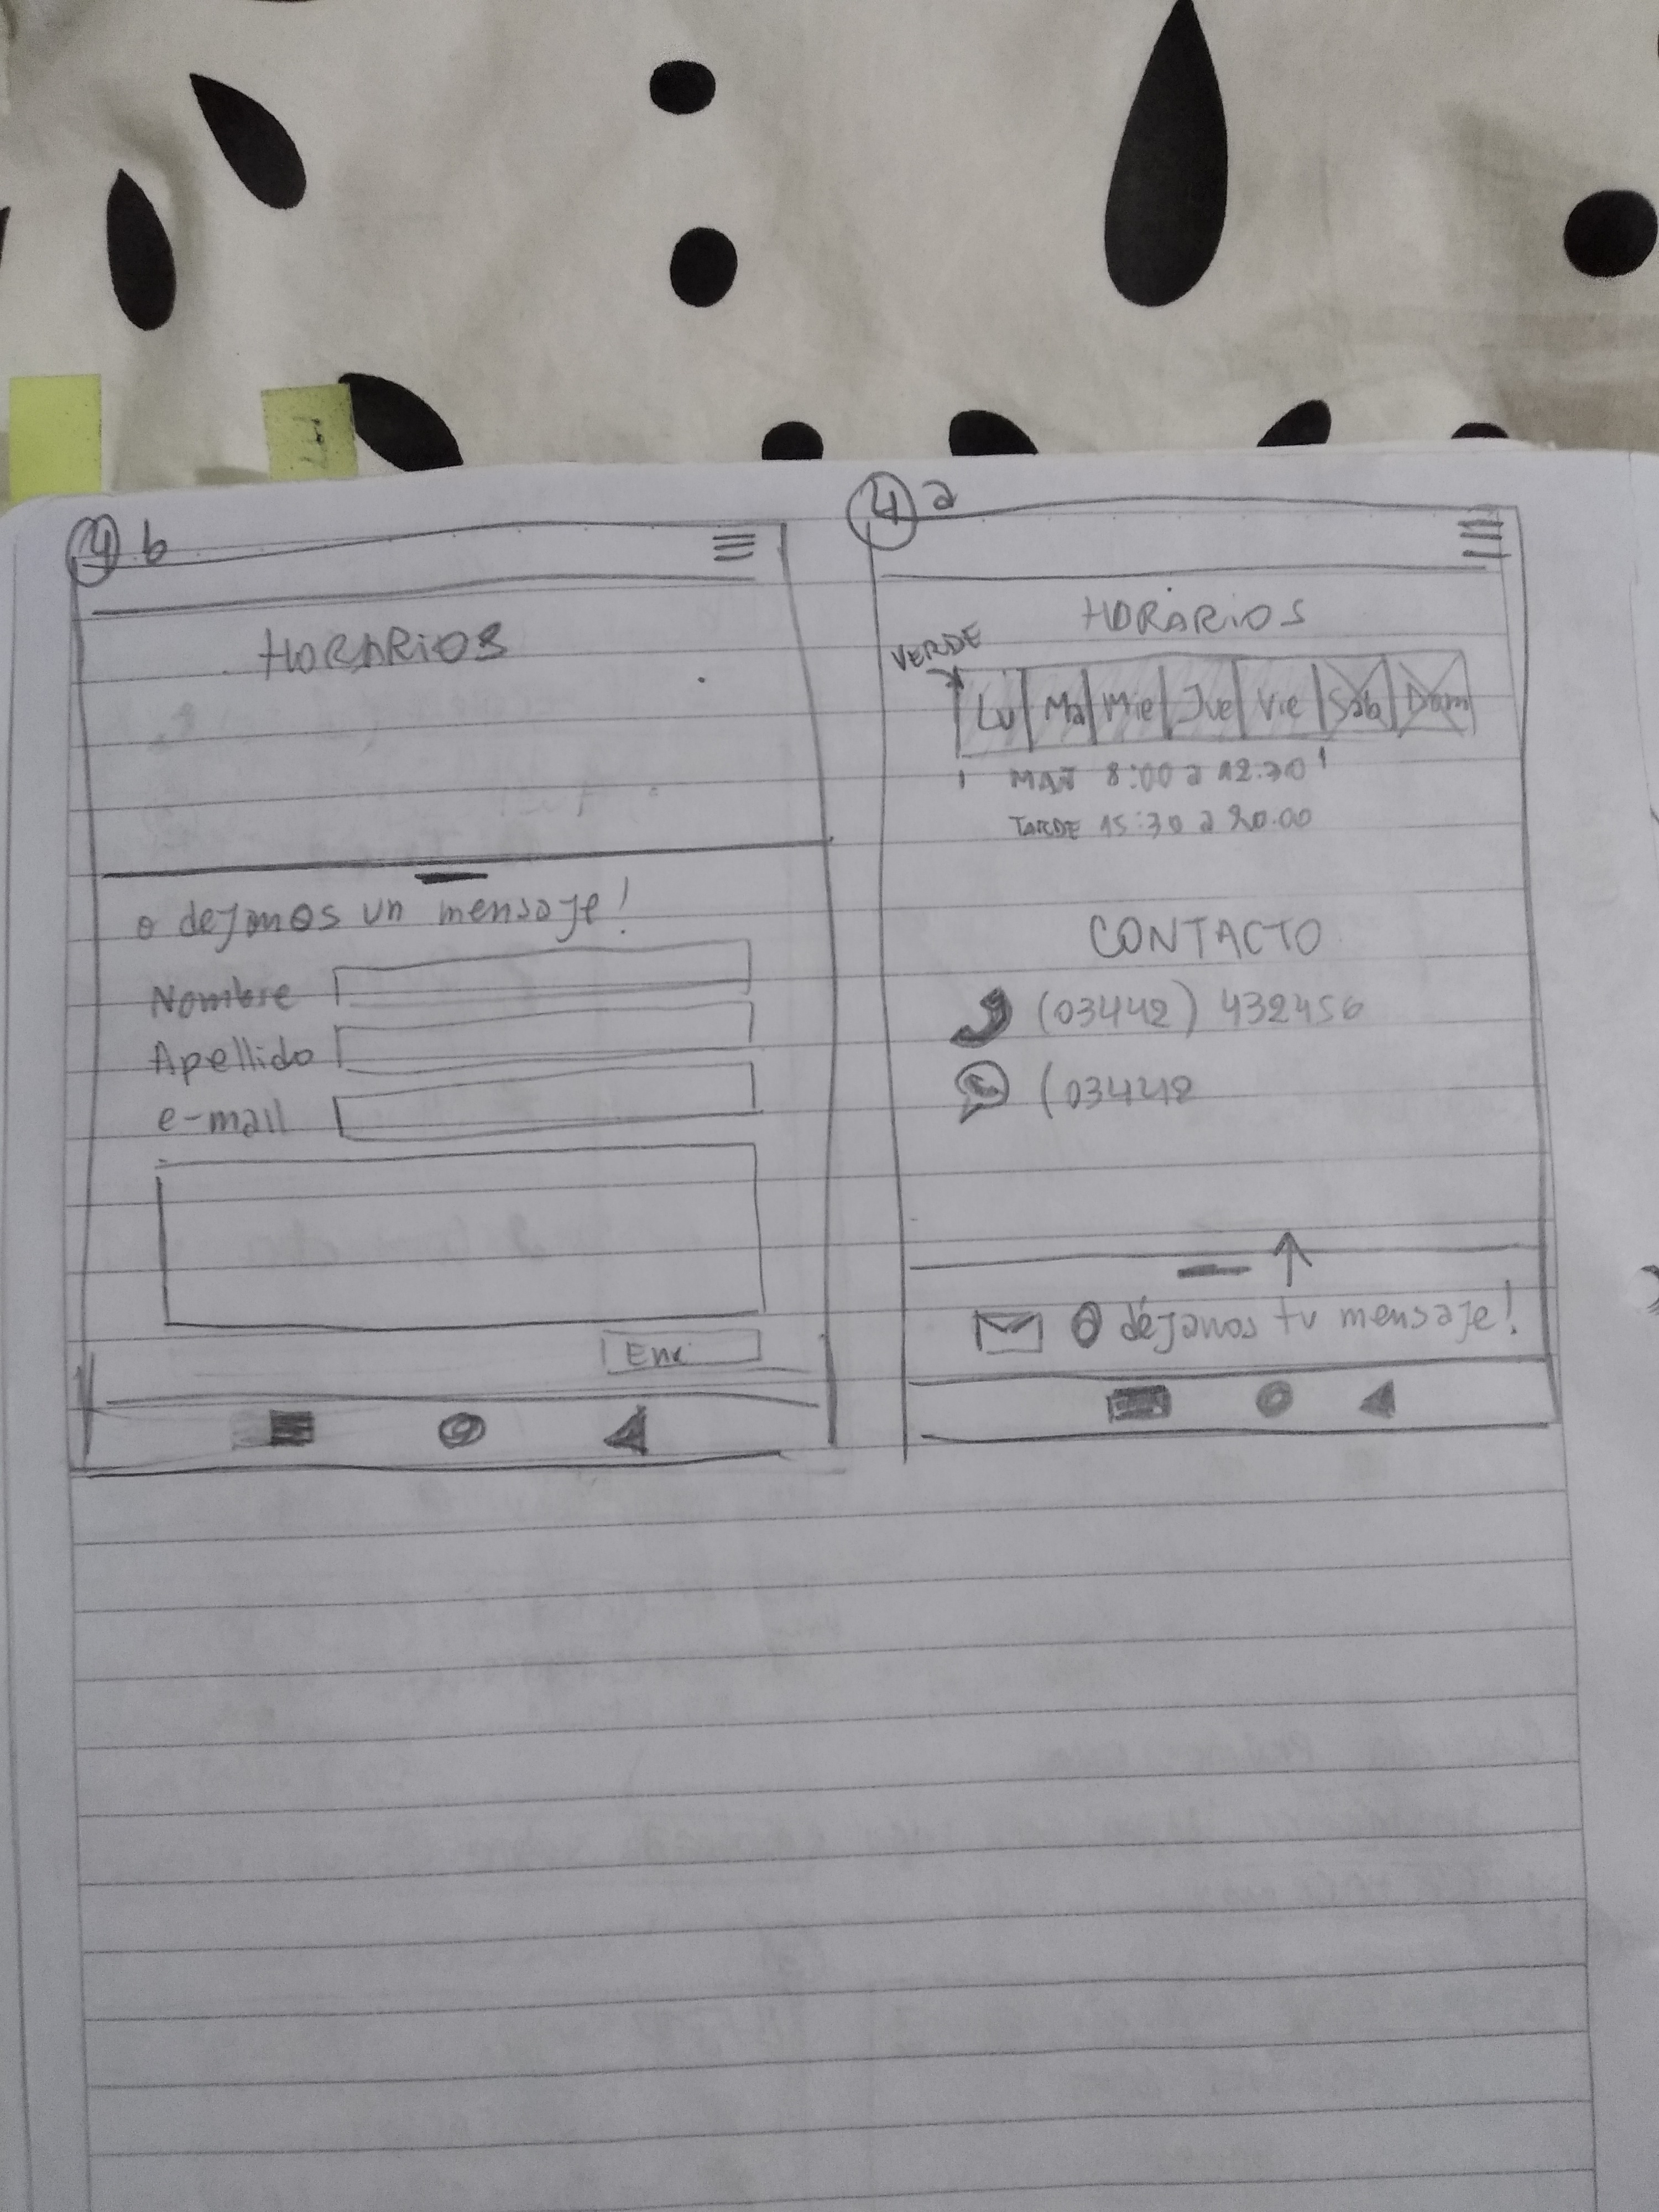 4 b
HORARIOS
o dejanos un mensaje!
Nombre
Apellido
e-mail
Env
4 a
HORARIOS
VERDE
Lu Ma Mie Jue Vie Sab Dom
MAÑ 8:00 a 12:30
TARDE 15:30 a 20:00
CONTACTO
(03442) 432456
(03442
O déjanos tu mensaje!